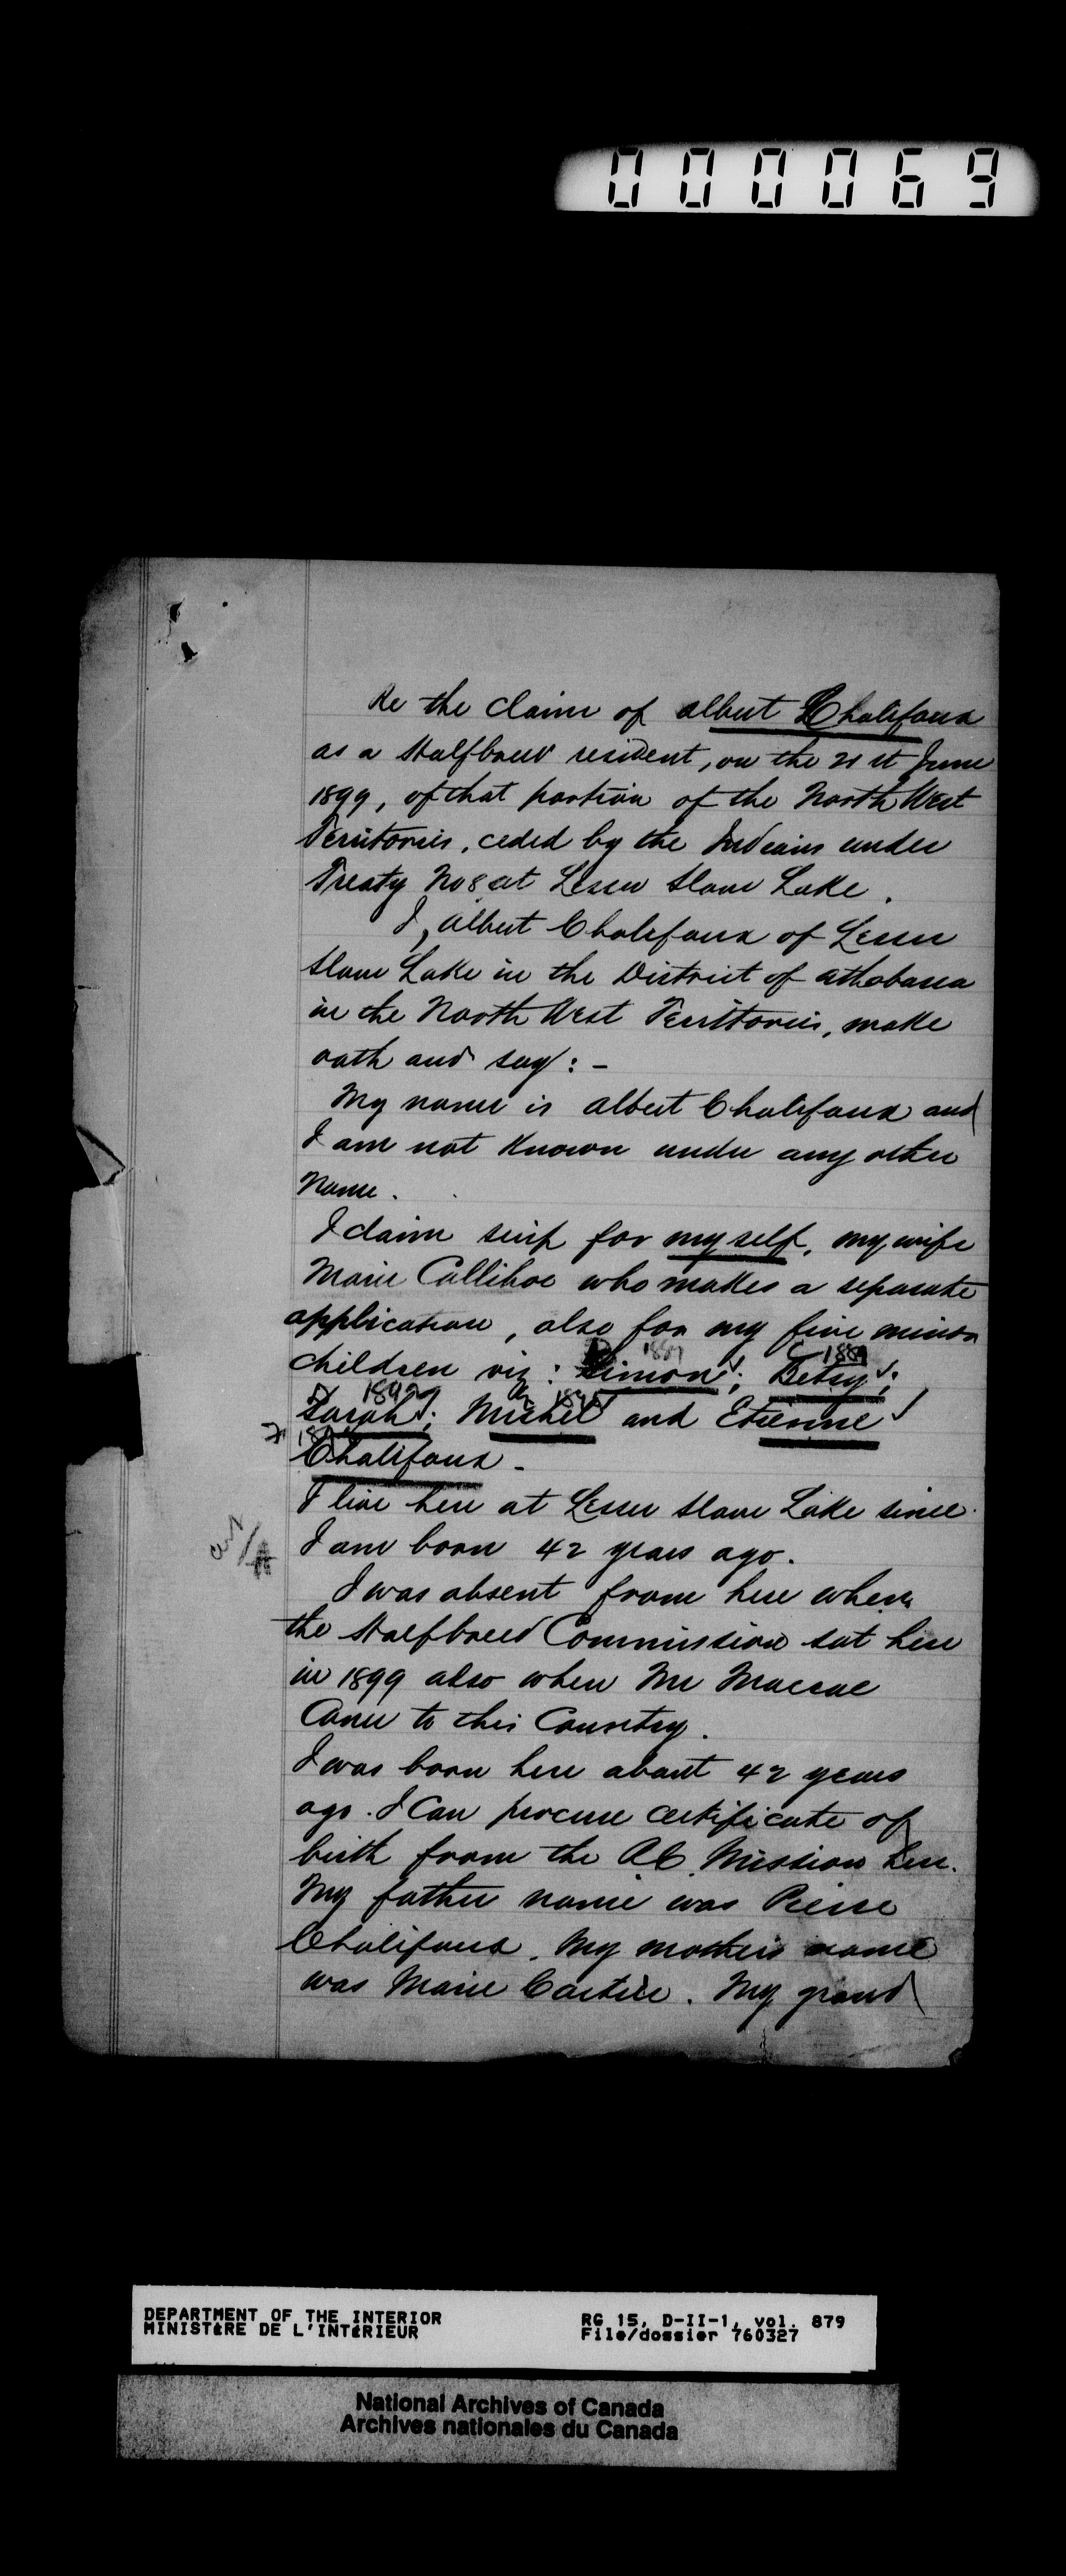 000069
Re the claim of Albert Chalifoux
as a Halfbreed resident, on the 21st June
1899, of that portion of the North West
Territories, ceded by the Indians under
Treaty No 8 at Lesser Slave Lake.
I, Albert Chalifoux of Lesser
Slave Lake in the District of Athabasca
in the North West Territories, make
oath and say : -
My name is Albert Chalifoux and
I am not known under any other
name.
I claim scrip for myself, my wife
Marie Callihoe who makes a separate
application, also for my five minor
1889
children viz : Simon; Betsy;
Sarah; Michel and Etienne
Chalifoux -
I live here at Lesser Slave Lake since
I am born 42 years ago.
I was absent from here when
the Halfbreed Commission sat here
in 1899 also when Mr Macrae
Came to this Country.
I was born here about 42 years
ago. I Can procure certificate of
birth from the R.C. Mission here.
My father name was Pierre
Chalifoux. My mother's name
was Marie Cartier. My grand
DEPARTMENT OF THE INTERIOR
MINISTÈRE DE L'INTÉRIEUR
RG 15, D-II-1, vol. 879
File/dossier 760327
National Archives of Canada
Archives nationales du Canada